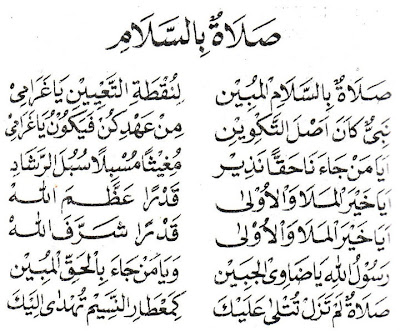 صَلَاةٌ بِالسَّلَامِ
صَلَاةٌ بِالسَّلَامِ الْمُبِيْنِ لِنُقْطَةِ التَّعْيِيْنِ يَاغَرَامِيْ
نَبِيٌّ كَانَ اَصْلَ التَّكْوِيْنِ مِنْ عَهْدِ كُنْ فَيَكُوْنُ يَاغَرَامِيْ
اَيَامَنْ جَاءَنَا حَقًّا نَذِيْرِ مُغِيْثًا مُسْبِلًا سُبُلَ الرَّشَادِ
اَيَاخَيْرَ الْمَلَا وَالْاُوْلَى قَدْرًا عَظَّمَ اللهْ
اَيَاخَيْرَ الْمَلَا وَالْاُوْلَى قَدْرًا شَرَّفَ اللهْ
رَسُوْلُ اللهِ يَاضَاوِى الْجَبِيْنِ وَيَامَنْ جَاءَ بِالْحَقِّ الْمُبِيْنِ
صَلَاةٌ لَمْ تَزَلْ تُتْلَى عَلَيْكَ كَمِعْطَارِ النَّسِيْمِ تُهْدَى اِلَيْكَ